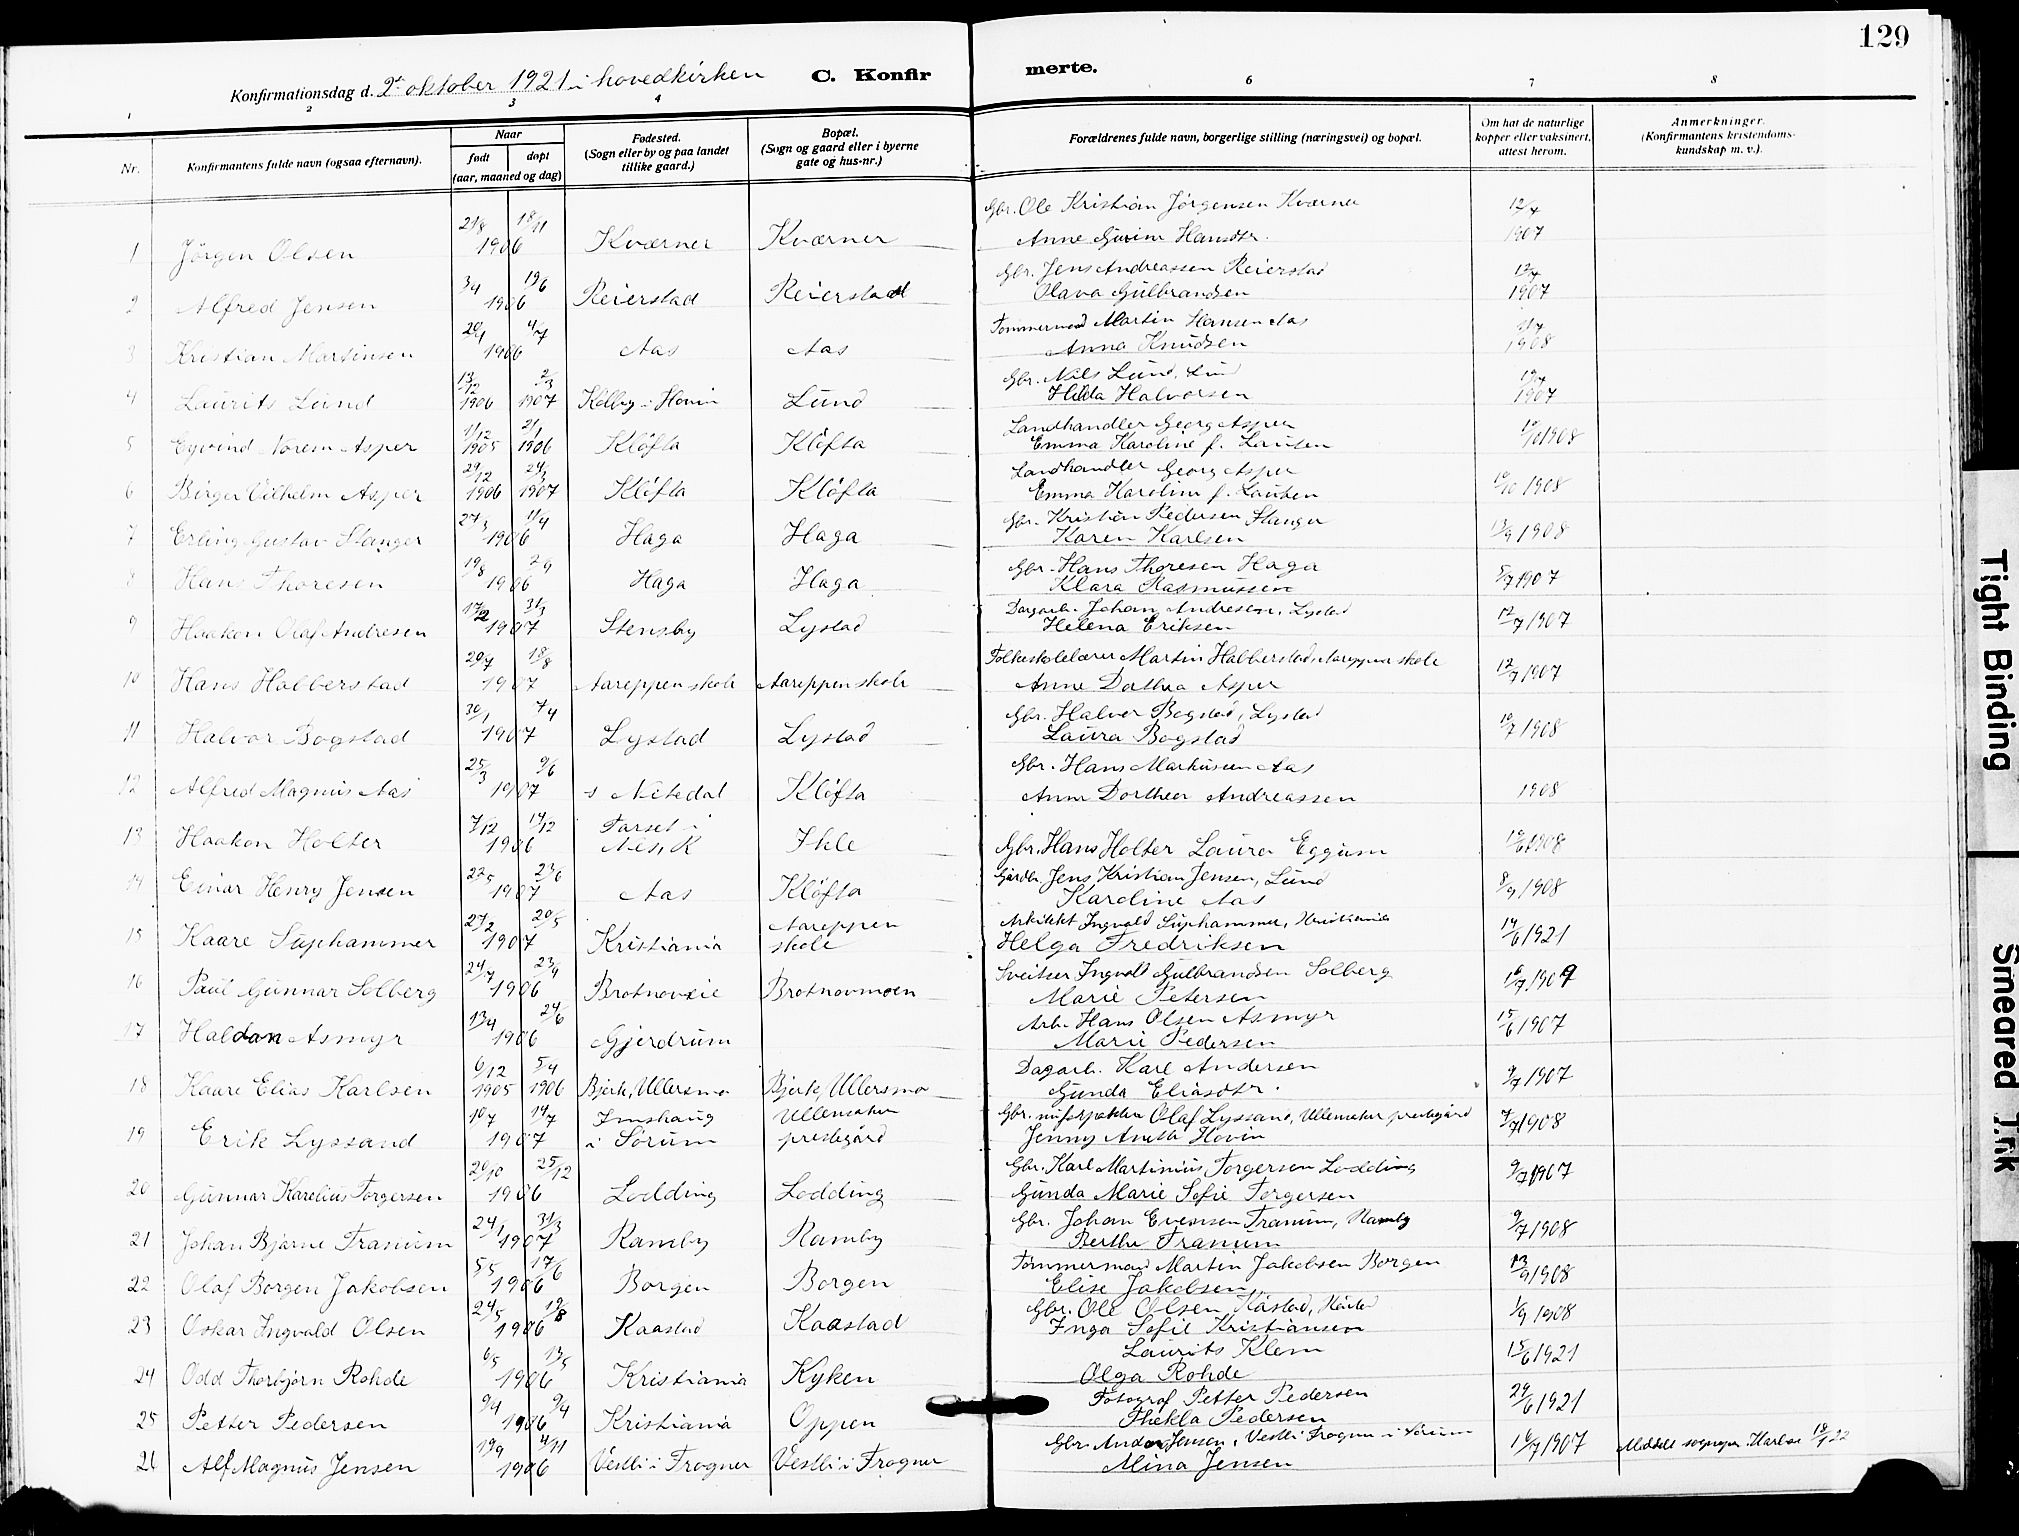 129
Konfirmationsdag d. 2. oktober 1921 i hovedkirken C. Konfirmerte.
1 2 3 4 6 7 8
Nr. Konfirmantens fulde navn (ogsaa efternavn). Naar født døpt (aar, maaned og dag) Fødested. (Sogn eller by og paa landet tillike gaard.) Bopæl. (Sogn og gaard eller i byerne gate og hus-nr.) Forældrenes fulde navn, borgerlige stilling (næringsvei) og bopæl. Om hat de naturlige kopper eller vaksinert, attest herom. Anmerkninger. (Konfirmantens kristendomskundskap m. v.).
1 Jörgen Olsen 21/8 18/11 1906 Kværner Kværner Gbr. Ole Kristian Jörgensen Kværner 12/7 1907
Anne Hansdtr.
2 Alfred Jensen 3/4 19/6 1906 Reierstad Reierstad Gbr. Jens Andreassen Reierstad 1907
Olava Gulbrandsen
3 Kristian Martinsen 4/7 1906 Aas Aas Tömmermand Martin Hansen Aas 1908
Anna Knudsen
4 Laurits Lund 13/12 1906 2/3 1907 i Hovin Lund Gbr. Nils Lund, Lund 1907
Hilda Halvorsen
5 Eyvind Norem Asper 11/12 1905 2/1 1906 Klöfta Klöfta Landhandler Georg Asper 1908
Emma Karoline f. Lausen
6 Birger Vilhelm Asper 29/12 1906 1907 Klöfta Klöfta Landhandler Georg Asper 1908
Emma Karoline f. Lausen
7 Erling Gustav Stanger 27/3 1906 Haga Haga Gbr. Kristian Pedersen Stanger 13/9 1908
Karen Karlsen
8 Hans Thoresen 19/8 1906 Haga Haga Gbr. Hans Thoresen Haga 5/7 1907
Klara Rasmussen
9 Haakon Olaf Andresen 17/2 31/3 1907 Stensby Lystad Dagarb. Johan Andresen, Lystad 12/7 1907
Helena Eriksen
10 Hans Habberstad 18/8 1907 Aareppen skole Aareppen skole Folkeskolelærer Martin Habberstad, Aareppen skole 12/7 1907
Anne Dorthea Asper
11 Halvor Bogstad 30/1 7/4 1907 Lystad Lystad Gbr. Halvor Bogstad, Lystad 1908
Laura Bogstad
12 Alfred Magnus Aas 25/3 9/6 1907 Nitedal Klöfta Gbr. Hans Markussen Aas 1908
Anne Dorthea Andreassen
13 Haakon Holter 7/12 1906 Farset i Nes, R Ihle Gbr. Hans Holter Laura Eggum 1908
14 Einar Henry Jensen 1907 Aas Klöfta Jens Kristian Jensen, Lund 8/9 1908
Karoline Aas
15 Kaare Suphammer 20/5 1907 Kristiania Aareppen skole Arkitekt Ingvald Suphammer, Kristiania 14/6 1921
Helga Fredriksen
16 Paul Gunnar Solberg 24/7 23/9 1906 Brotnoveie Brotnovmoen Sveitser Ingvald Gulbrandsen Solberg 1909
Marie Petersen
17 Haldan Asmyr 13/4 24/6 1906 Gjerdrum Arb. Hans Olsen Asmyr 15/6 1907
Marie Pedersen
18 Kaare Elias Karlsen 6/12 1905 5/4 1906 Bjerke, Ullersmo Bjerke, Ullersmo Dagarb. Karl Andersen 9/7 1907
Gunda Eliasdtr.
19 Erik Lyssand 10/7 14/7 1907 Imshaug i Sörum Ullensaker prestegård Gbr. Olaf Lyssand, Ullensaker prestegård 9/7 1908
Jenny Hovin
20 Gunnar Karelius Torgersen 20/10 25/12 1906 Lodding Lodding Gbr. Karl Martinius Torgersen Lodding 9/7 1907
Gunda Marie Sofie Torgersen
21 Johan Bjarne Tranum 24/1 31/3 1907 Ramby Ramby Gbr. Johan Evensen Tranum, Ramby 9/7 1908
Berthe Tranum
22 Olaf Borgen Jakobsen 5/5 17/6 1906 Borgen Borgen Tömmermand Martin Jakobsen Borgen 13/9 1908
Elise Jakobsen
23 Oskar Ingvald Olsen 24/5 19/8 1906 Kaastad Kaastad Gbr. Ole Olsen Kåstad, Kåstad 1/9 1908
Inga Sofie Kristiansen
24 Odd Thorbjørn Rohde 6/5 13/5 1906 Kristiania Kyken Laurits Klem 15/6 1921
Olga Rohde
25 Petter Pedersen 9/4 1906 Kristiania Oppen Fotograf Petter Pedersen 29/6 1921
Thekla Pedersen
26 Alf Magnus Jensen 19/9 4/11 1906 Vestli i Frogner Vestli i Frogner Gbr. Jensen, Vestli Frogner i Sörum 16/7 1907 Meddelt
Mina Jensen
Tight Binding
Smeared Ink